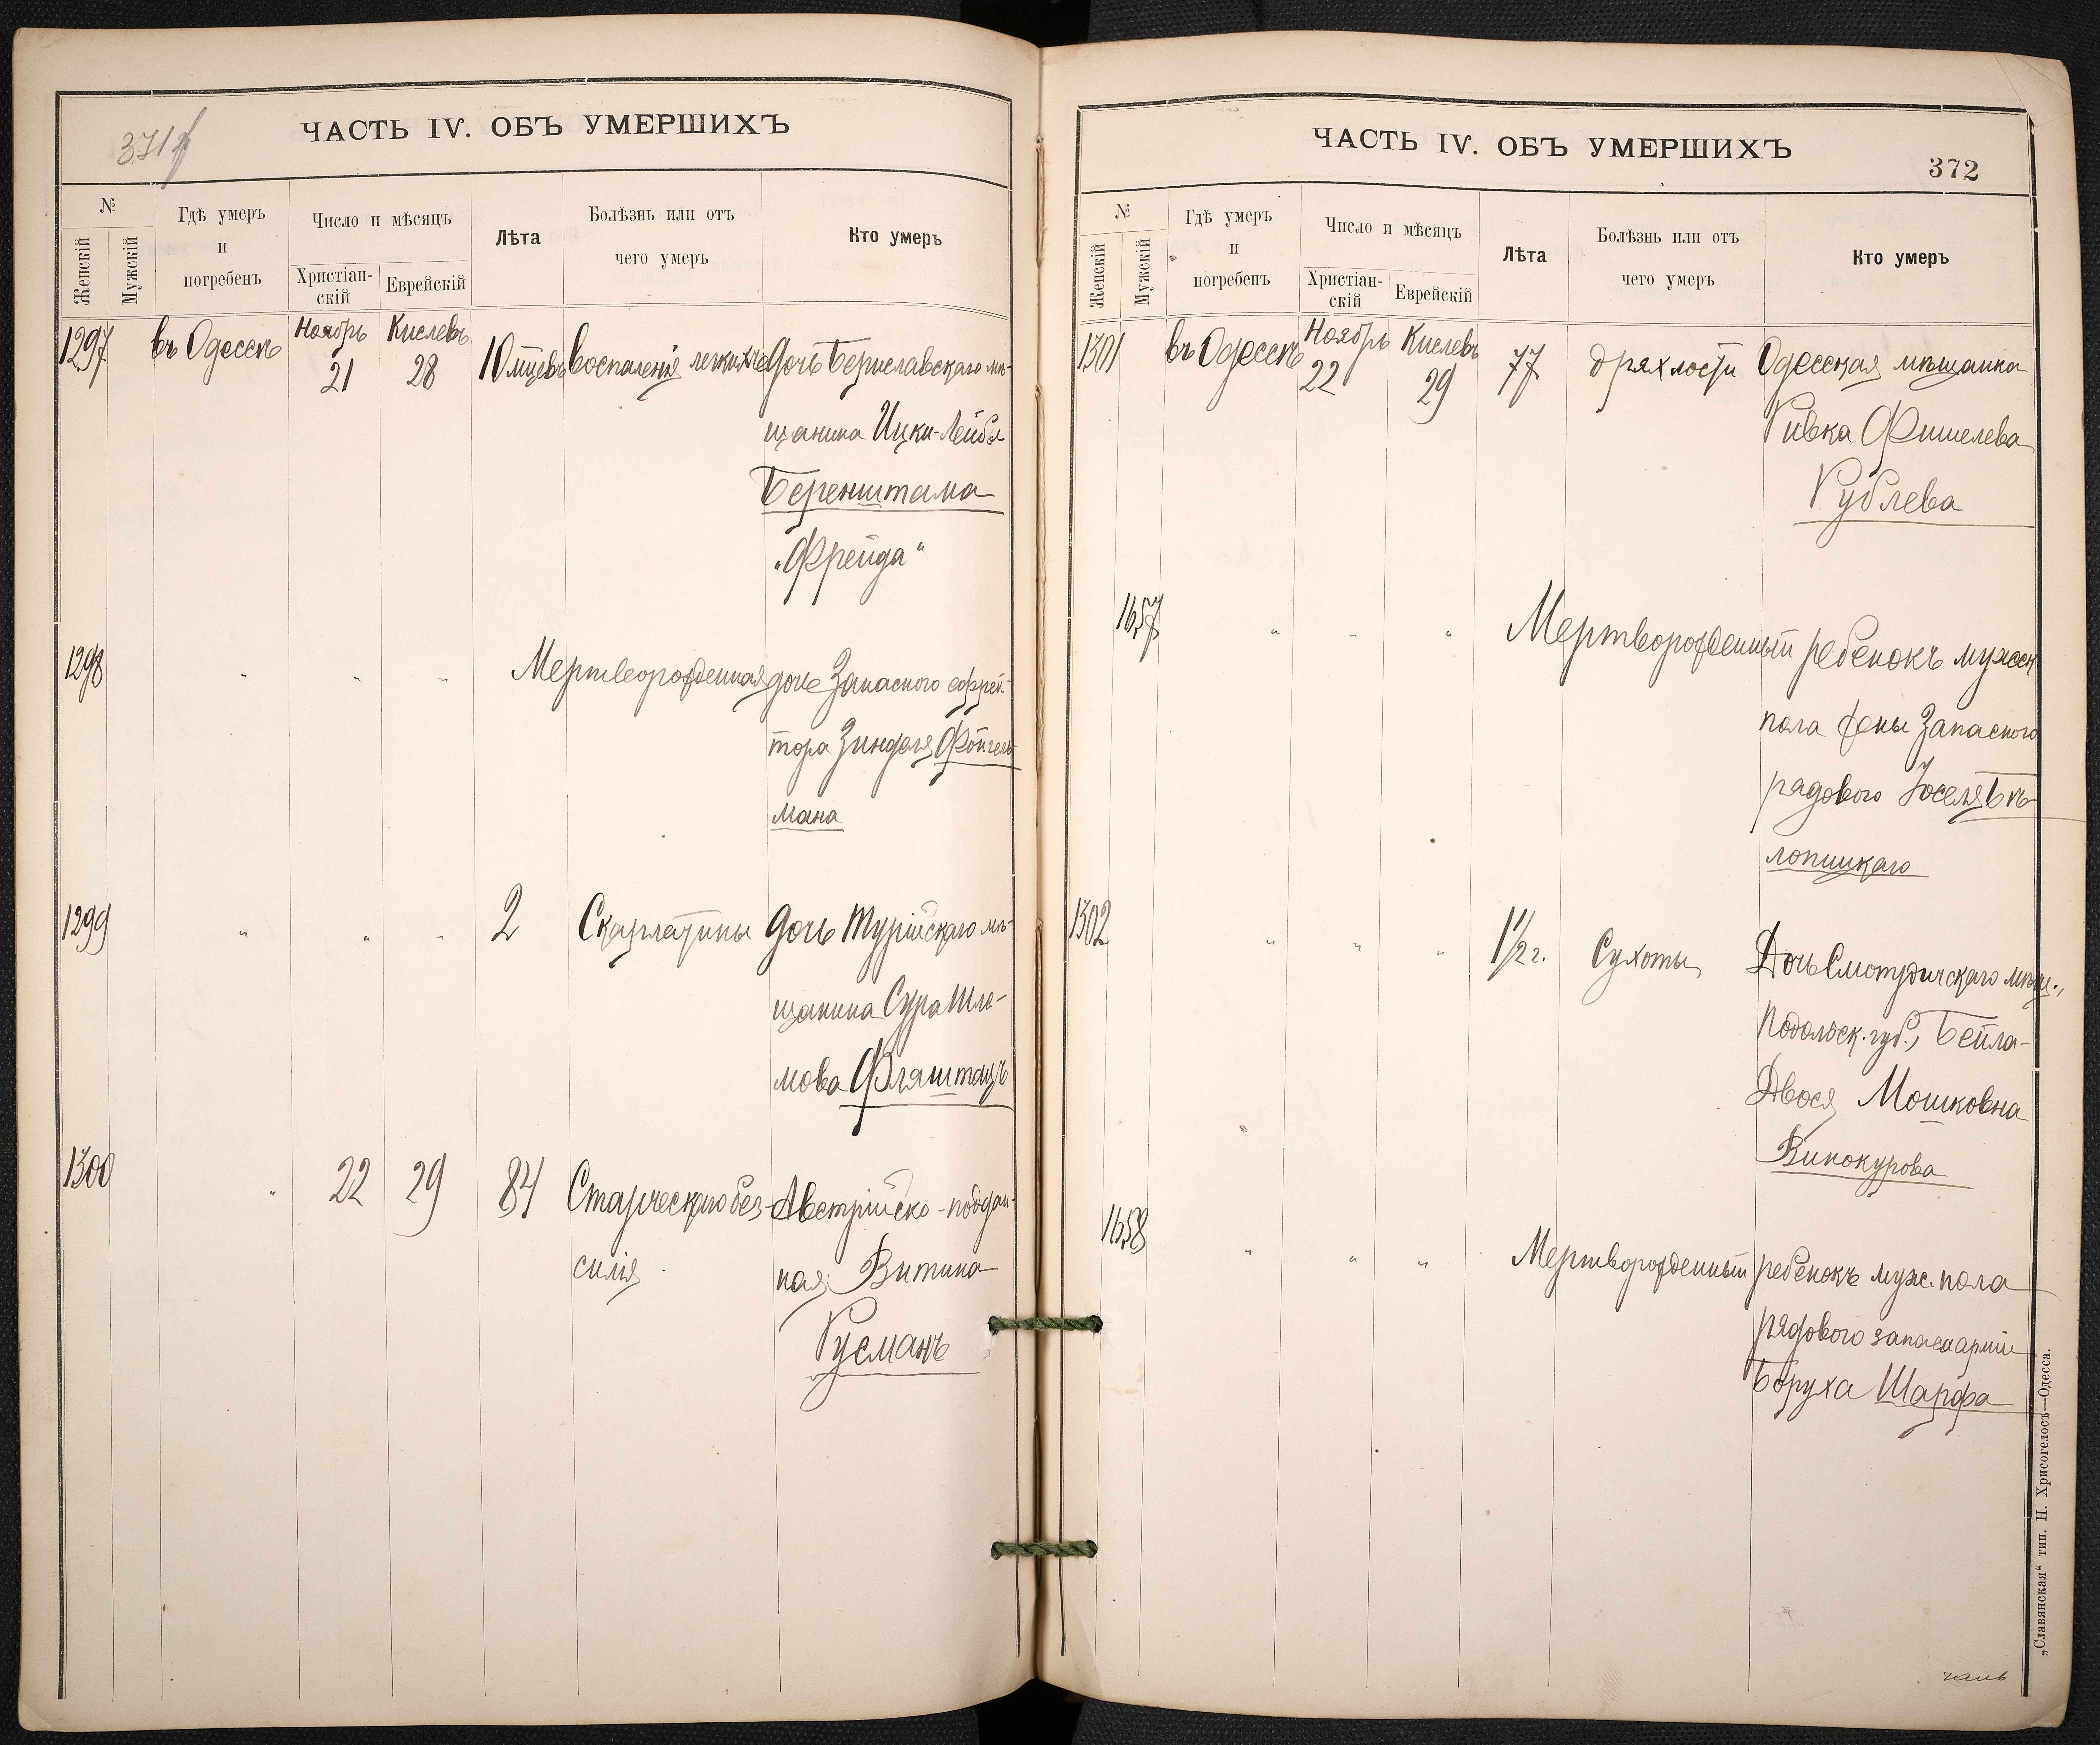 371
ЧАСТЬ IV. ОБЪ УМЕРШИХЪ
№
Женскій
Мужскій
Гдѣ умеръ
и
погребенъ
Число и мѣсяцъ
Христіан-
скій
Еврейскій
Лѣта
Болѣзнь или отъ
чего умеръ
Кто умеръ
1297 въ Одессѣ Ноябрь 21 Кислевъ 28 10 мцевъ Воспаленія легкихъ Дочь Бериславскаго мѣ-
щанина Ицки-Лейбы
Беренштама
„Фрейда“
1298 " " " Мертворожденная дочь Запасного ефрей-
тора Зинделя
мана
1299 " " " 2 Скарлатины Дочь Турійскаго мѣ-
щанина Сура Шле-
мова Фляштацъ
1300 " 22 29 84 Старческаго без- Австрійско-поддан-
силія ная Витина
Гусманъ
ЧАСТЬ IV. ОБЪ УМЕРШИХЪ
372
№
Женскій
Мужскій
Гдѣ умеръ
и
погребенъ
Число и мѣсяцъ
Христіан-
скій
Еврейскій
Лѣта
Болѣзнь или отъ
чего умеръ
Кто умеръ
1301 въ Одессѣ Ноябрь 22 Кислевъ 29 77 дряхлости Одесская мѣщанка
Ривка Фишелева
Рублева
1657 " " " Мертворожденный ребенокъ мужск.
пола жены Запасного
рядового Іоселя Бѣ-
лопицкаго
1302 " " " 1 1/2 г. Сухоты Дочь Смотричскаго мѣщ.,
Подольск. губ., Бейла-
Двося Мошковна
Винокурова
1658 " " " Мертворожденный ребенокъ муж. пола
рядового запаса арміи
Боруха Шарфа
„Славянская“ тип. Н. Хрисогелосъ—Одесса.